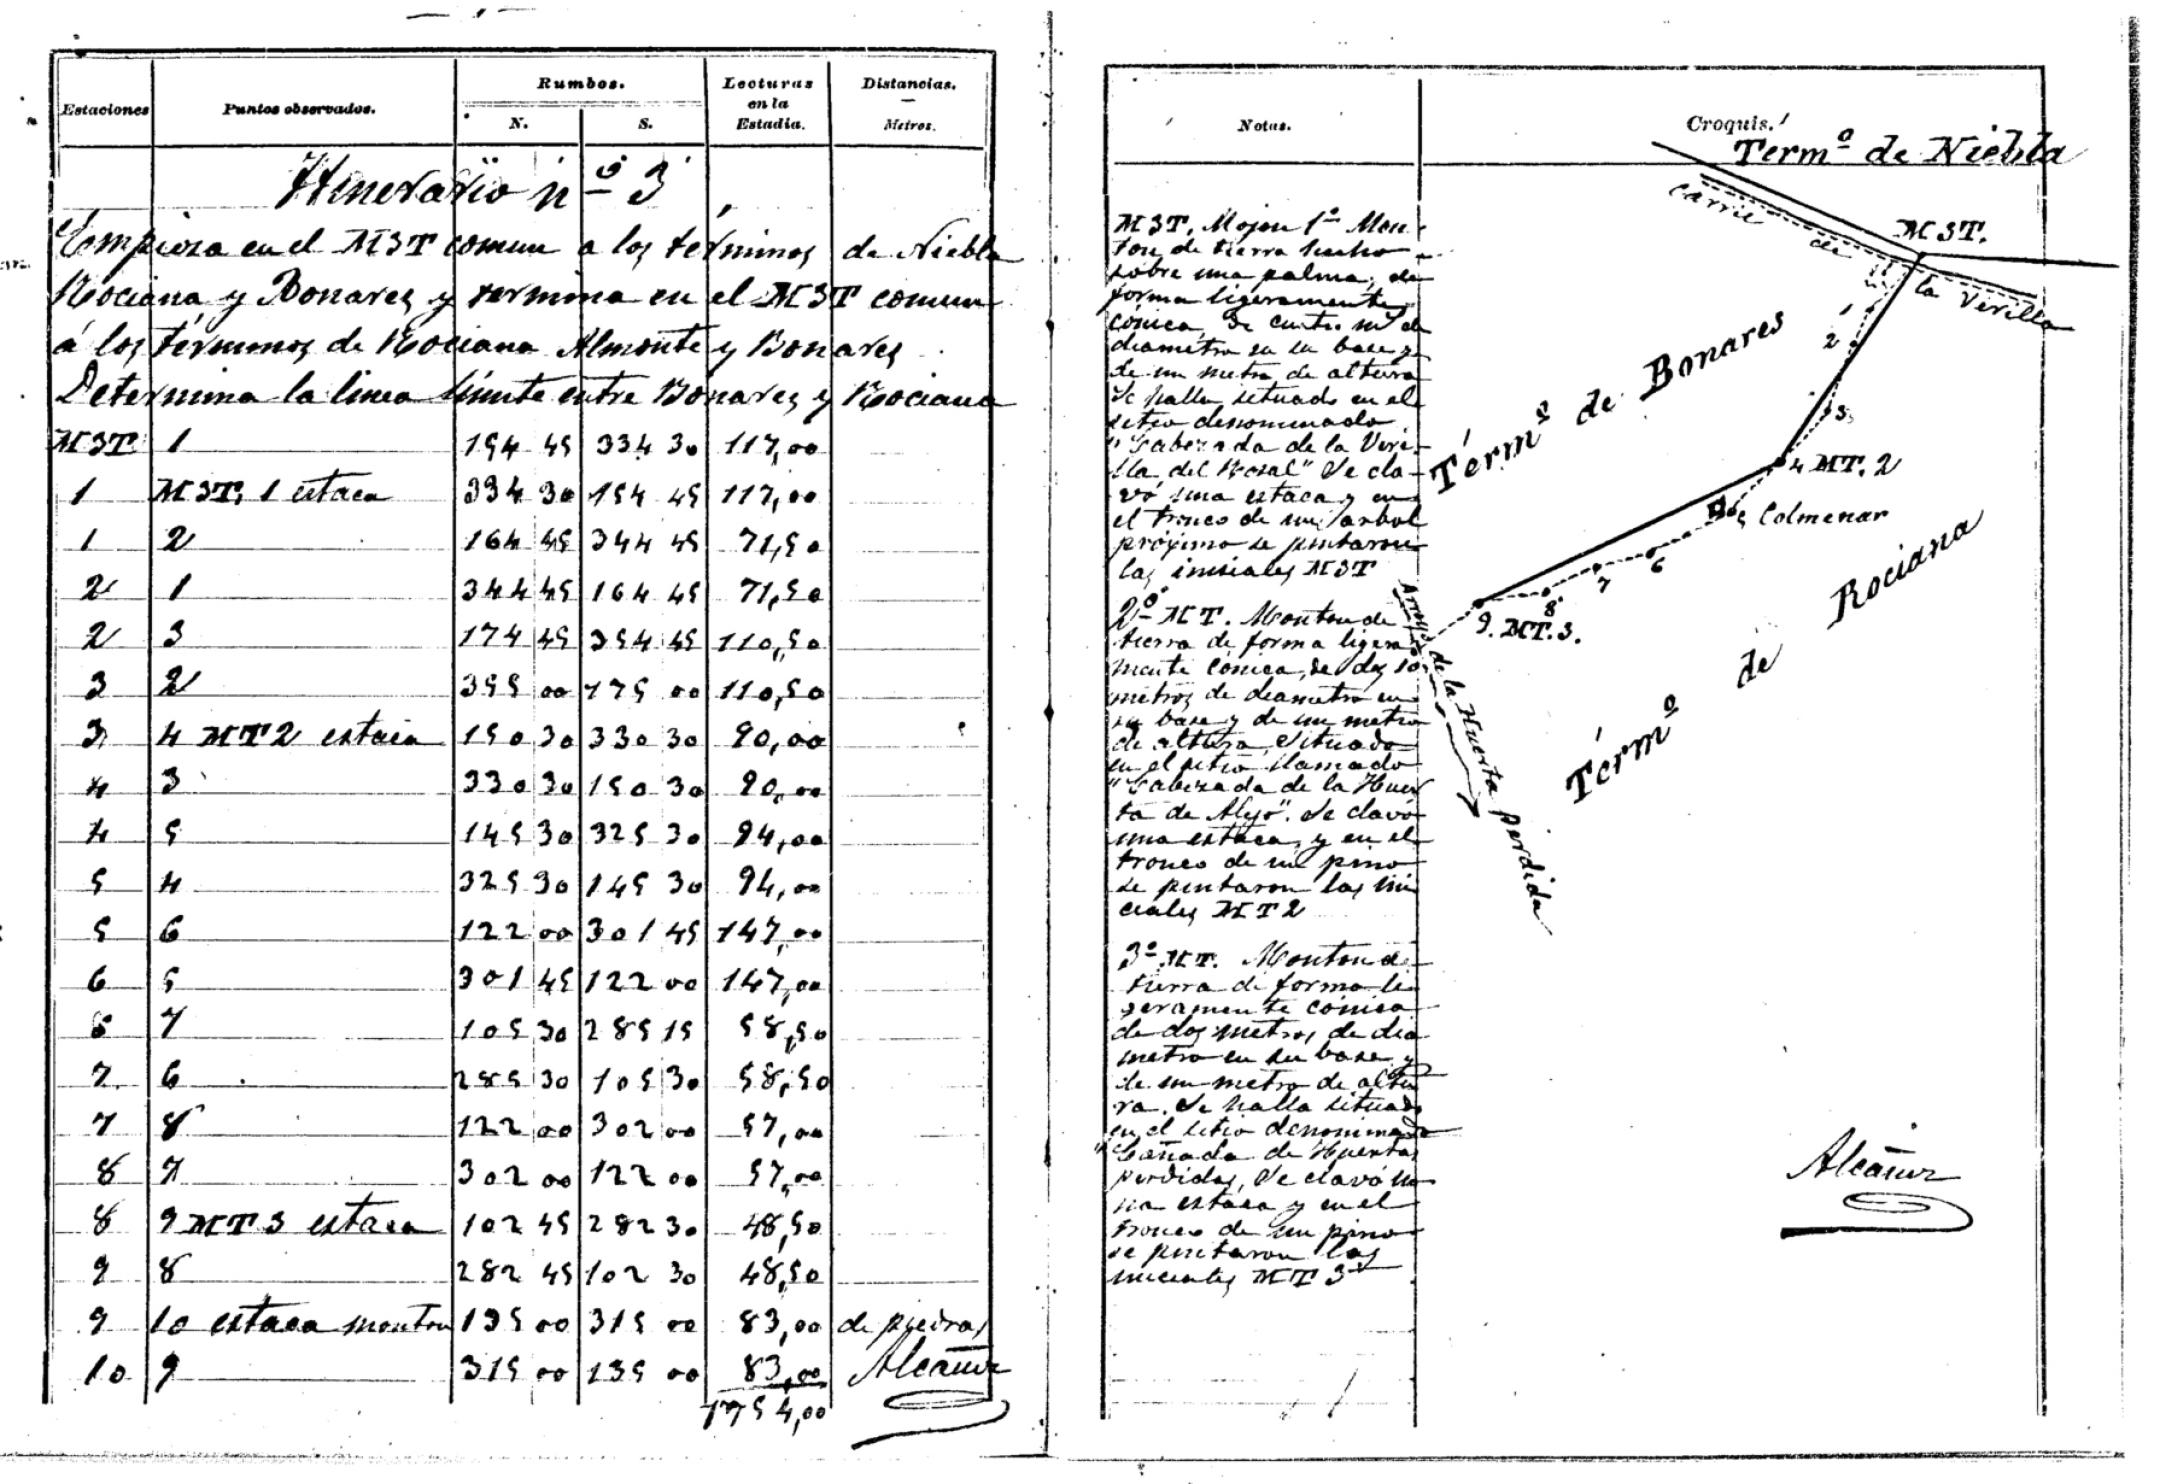 Estaciones Puntos observados. Rumbos. N. S. Lecturas en la Estadia. Distancias. Metros.
Itinerario nº 3
Empieza en el M3T comun a los términos de Niebla
Rociana y Bonares y termina en el M3T comun
á los términos de Rociana Almonte y Bonares
Determina la linea límite entre Bonares y Rociana
M3T 1 154 45 334 30 117,00
1 M3T, 1 estaca 334 30 154 45 117,00
1 2 164 45 344 45 71,50
2 1 344 45 164 45 71,50
2 3 174 45 354 45 110,50
3 2 355 00 175 00 110,50
3 4 MT2 estaca 150 30 330 30 90,00
4 3 330 30 150 30 90,00
4 5 145 30 325 30 94,00
5 4 325 30 145 30 94,00
5 6 122 00 301 45 147,00
6 5 301 45 122 00 147,00
6 7 105 30 285 15 58,50
7 6 285 30 105 30 58,50
7 8 122 00 302 00 57,00
8 7 302 00 122 00 57,00
8 9 MT3 estaca 102 45 282 30 48,50
9 8 282 45 102 30 48,50
9 10 estaca monton 135 00 315 00 83,00 de piedras
10 9 315 00 135 00 83,00 Alcañiz
1754,00
Notas.
M3T. Mojon 1º Mon-
ton de tierra hecho
sobre una palma, de
forma ligeramente
cónica, de cuatro mº de
diametro en su base y
de un metro de altura
Se halla situado en el
sitio denominado
"Cabezada de la Veri-
lla del Rosal" Se cla-
vó una estaca y en
el tronco de un arbol
próximo se pintaron
las iniciales M3T
2º MT. Monton de
tierra de forma ligera
mente cónica, de dos
metros de diametro en
su base y de un metro
de altura Situado
en el sitio llamado
"Cabezada de la Huer
ta de Alejo". Se clavó
una estaca, y en el
tronco de un pino
se pintaron las ini
ciales MT2
3º MT. Monton de
tierra de forma li
geramente cónica
de dos metros de dia
metro en su base y
de un metro de altu
ra. Se halla situado
en el sitio denominado
"Cañada de Huertas
perdidas, Se clavó u
na estaca y en el
tronco de un pino
se pintaron las
iniciales MT 3
Croquis.
Termº de Niebla
carril de la Verilla
M3T.
1
2
3
4 MT. 2
5 Colmenar
6
7
8
9. MT. 3.
Térmº de Bonares
Térmº de Rociana
Arroyo de la Huerta perdida
Alcañiz